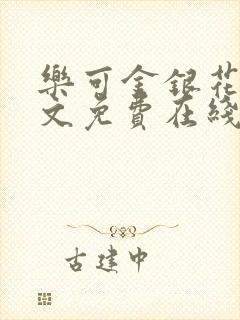 樂可金銀花
文免費在綫
古建中